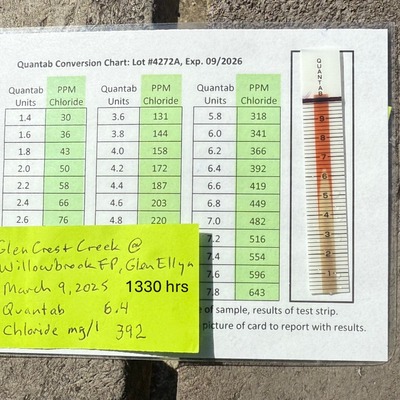 Quantab Conversion Chart: Lot #4272A, Exp. 09/2026
Quantab Units PPM Chloride Quantab Units PPM Chloride Quantab Units PPM Chloride
1.4 30 3.6 131 5.8 318
1.6 36 3.8 144 6.0 341
1.8 43 4.0 158 6.2 366
2.0 50 4.2 172 6.4 392
2.2 58 4.4 187 6.6 419
2.4 66 4.6 203 6.8 449
2.6 76 4.8 220 7.0 482
7.2 516
7.4 554
7.6 596
7.8 643
of sample, results of test strip.
picture of card to report with results.
Glen Crest Creek @
Willowbrook FP, Glen Ellyn
March 9, 2025 1330 hrs
Quantab 6.4
Chloride mg/l 392
QUANTAB
9
8
7
6
5
4
3
2
1